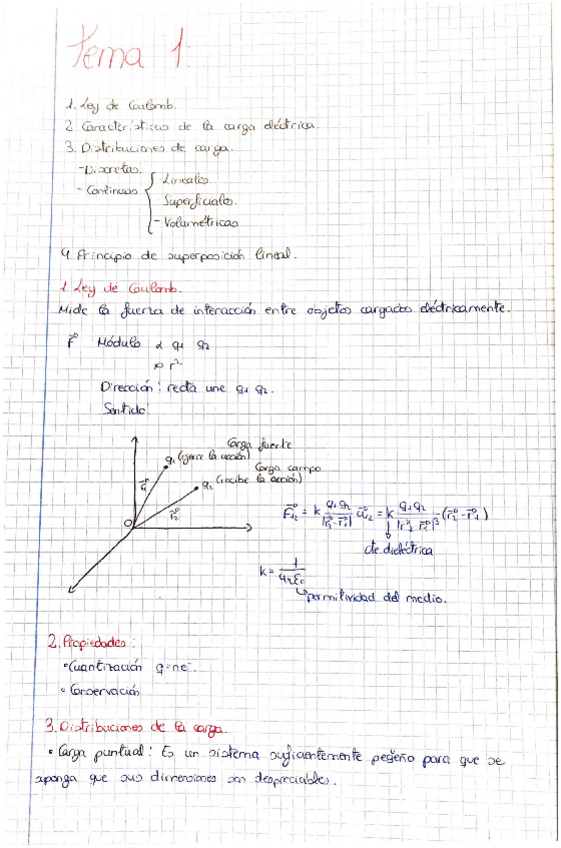 Tema 1:
1. Ley de Coulomb.
2. Características de la carga eléctrica.
3. Distribuciones de carga.
- Discretas.
- Continuas { Lineales.
Superficiales.
- Volumétricas
4. Principio de superposición lineal.
1. Ley de Coulomb.
Mide la fuerza de interacción entre objetos cargados eléctricamente.
F⃗ Módulo α q1 q2
r²
Dirección: recta une q1 q2.
Sentido:
Carga fuente
q1 (ejerce la acción)
Carga campo
q2 (recibe la acción)
r⃗1
r⃗2
O
F⃗12 = k q1q2/|r⃗2-r⃗1| u⃗12 = k q1q2/|r⃗2-r⃗1|³ (r⃗2-r⃗1)
cte. dieléctrica
k = 1/4πε0
permitividad del medio.
2. Propiedades:
• Cuantización q=ne⁻.
• Conservación
3. Distribuciones de la carga.
• Carga puntual: Es un sistema suficientemente pequeño para que se
suponga que sus dimensiones son despreciables.